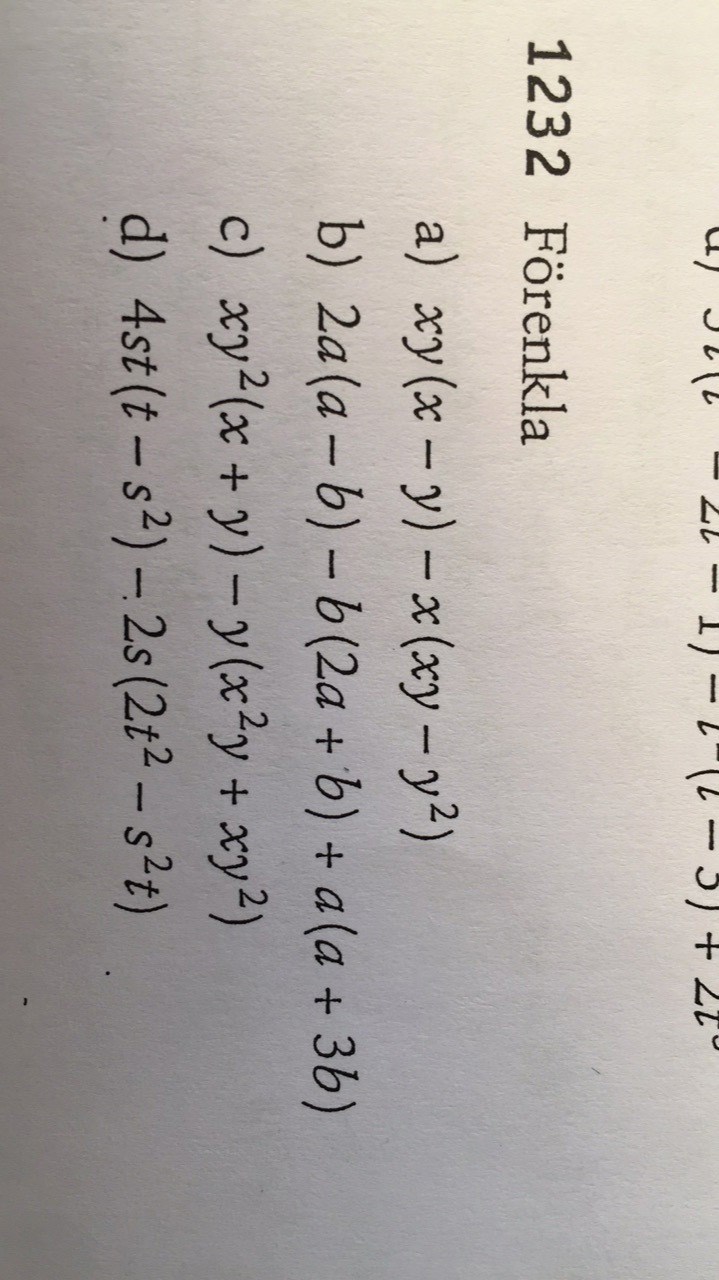 1232 Förenkla
a) xy(x − y) − x(xy − y²)
b) 2a(a − b) − b(2a + b) + a(a + 3b)
c) xy²(x + y) − y(x²y + xy²)
d) 4st(t − s²) − 2s(2t² − s²t)